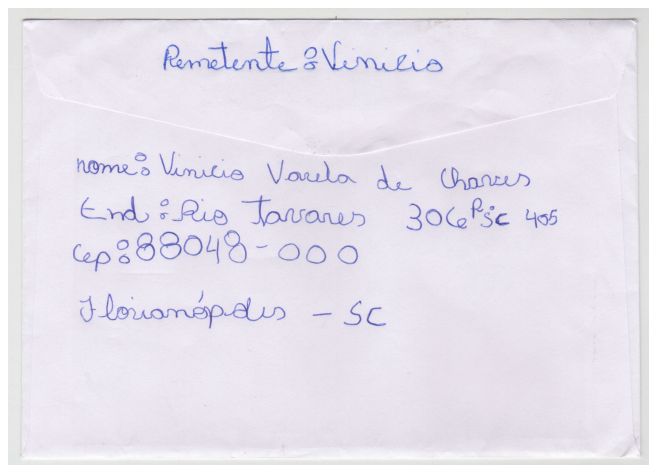 Remetente: Vinicio
nome: Vinicio Varela de
End: Rio Tavares SC 405
Cep: 88048-000
Florianópolis - SC